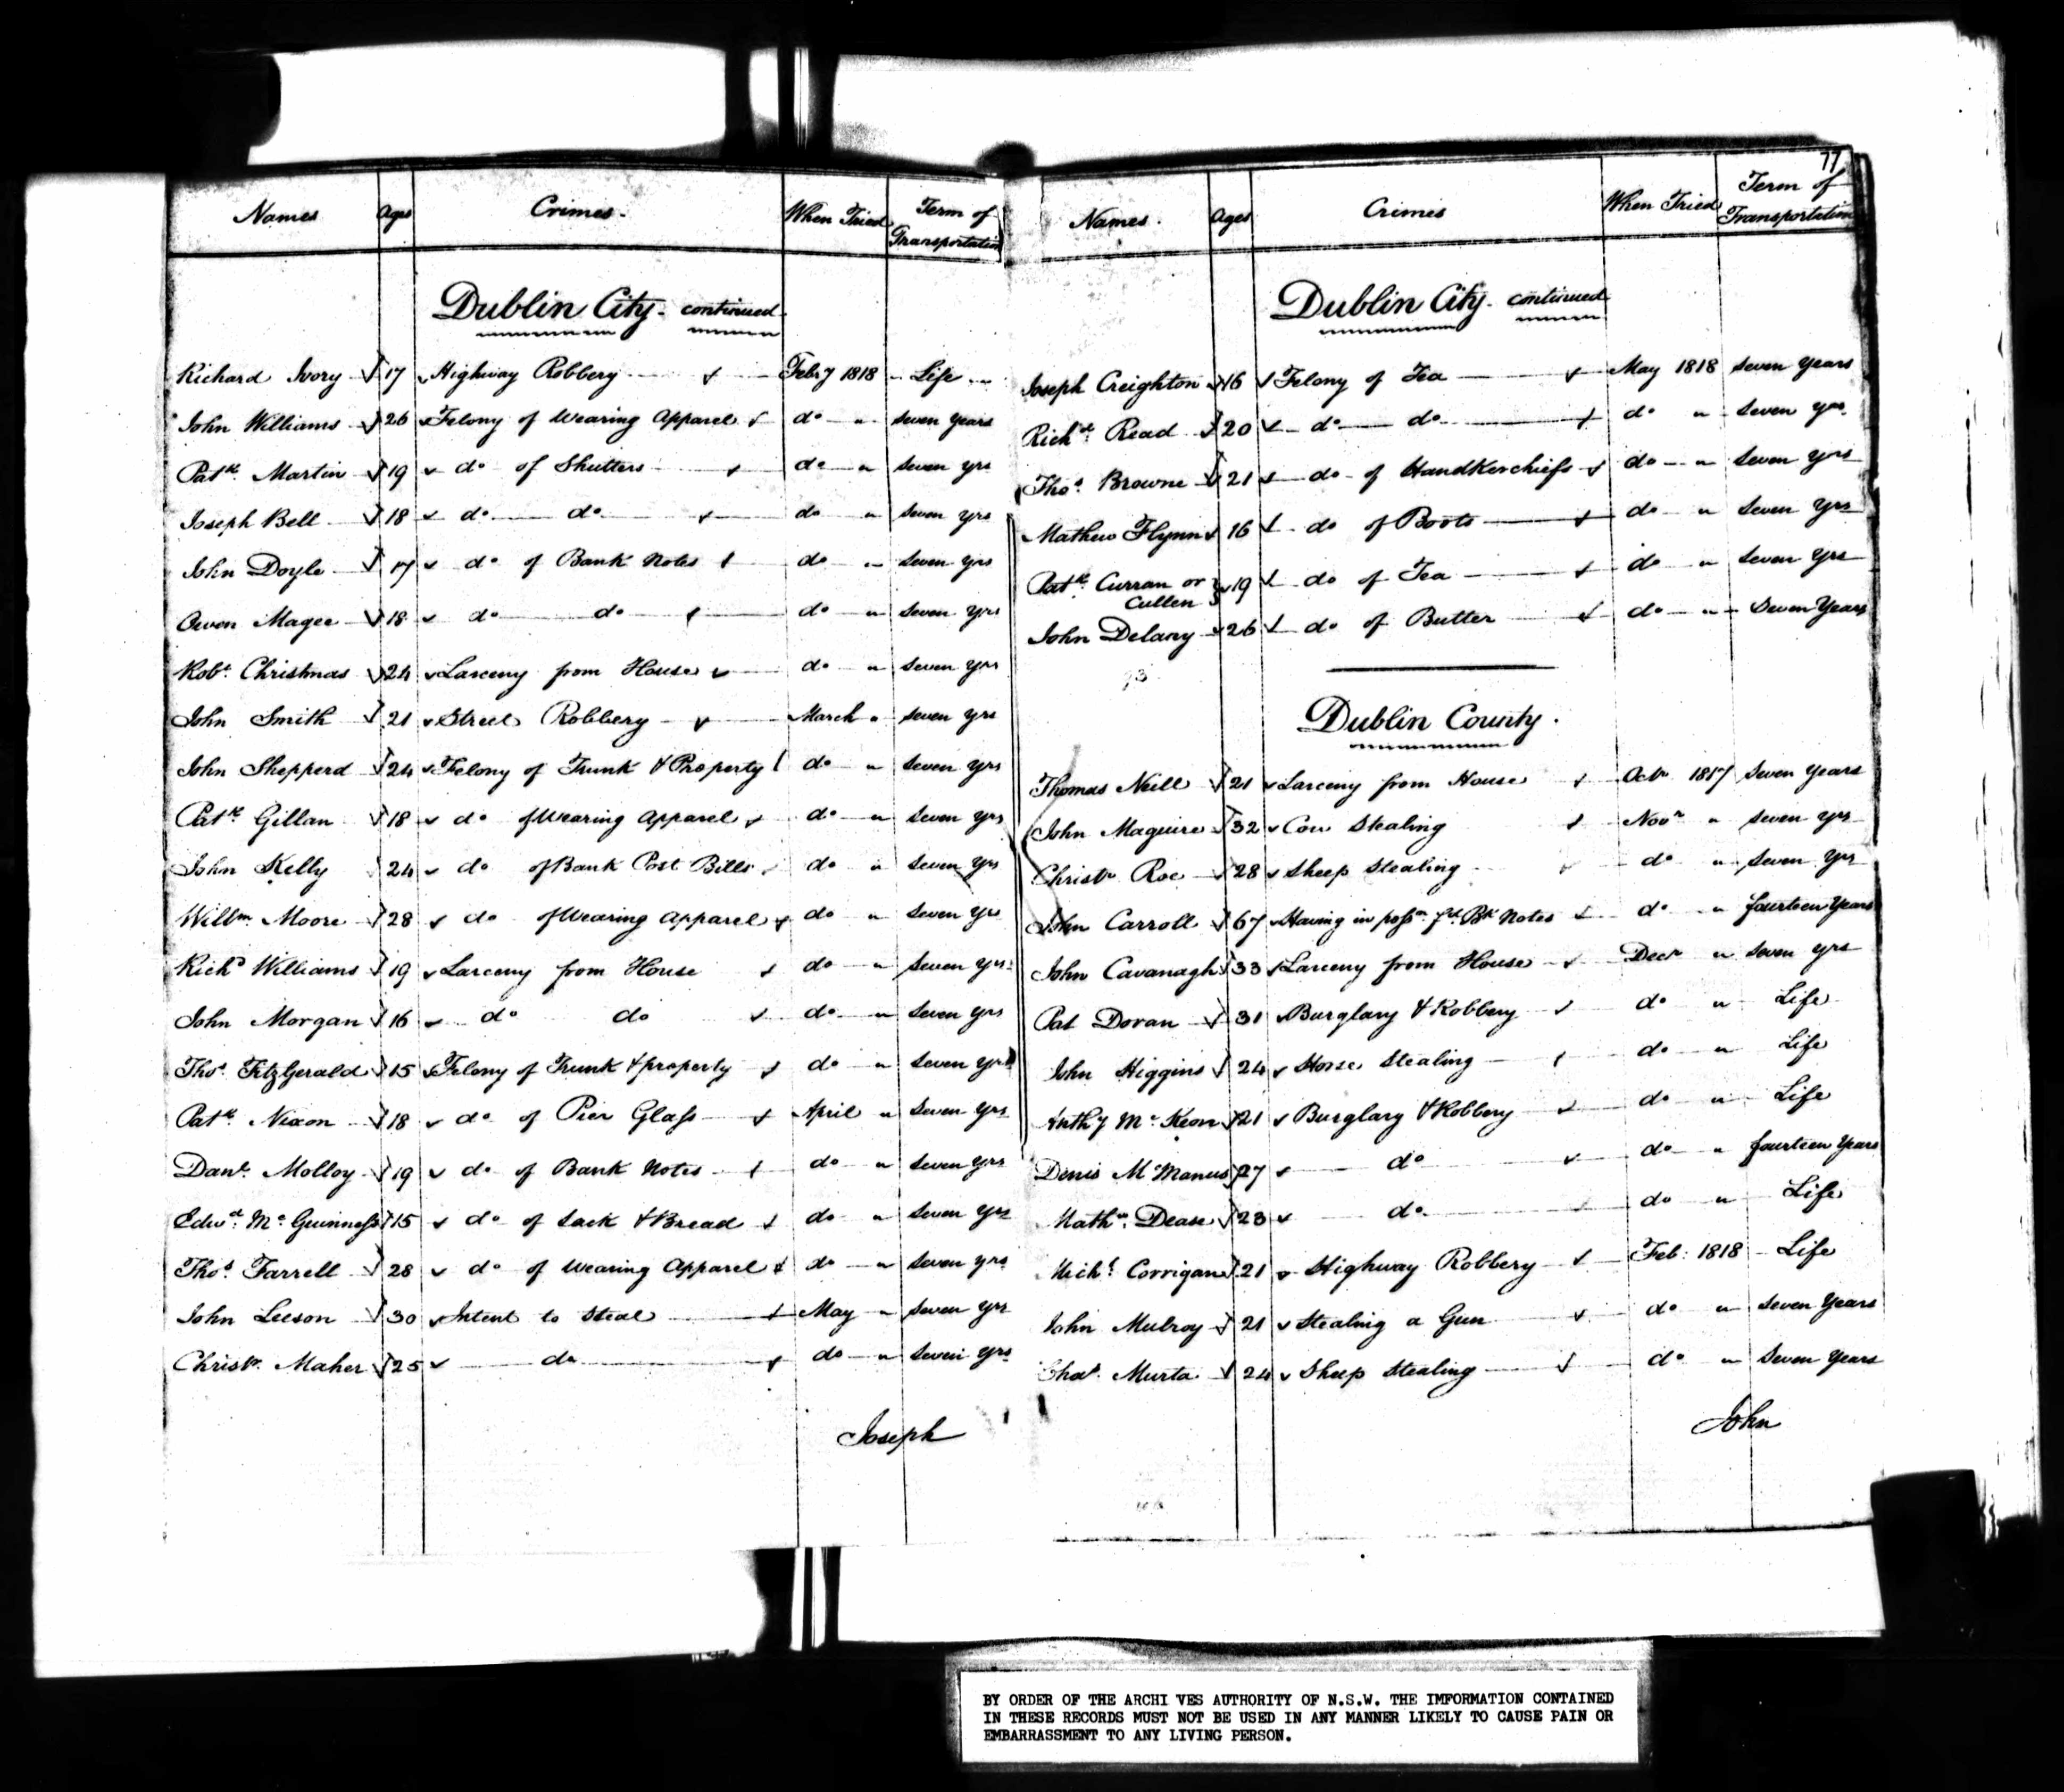 Names Ages Crimes. When Tried Term of Transportation
Dublin City. continued
Richard Ivory 17 Highway Robbery Feby 1818 Life
John Williams 26 Felony of Wearing Apparel do " seven years
Patk. Martin 19 do of Shutters do " seven yrs
Joseph Bell 18 do do do " seven yrs
John Doyle 17 do of Bank Notes do " seven yrs
Owen Magee 18 do do do " seven yrs
Robt. Christmas 24 Larceny from House do " seven yrs
John Smith 21 Street Robbery March " seven yrs
John Shepperd 24 Felony of Trunk & Property do " seven yrs
Patk. Gillan 18 do of Wearing Apparel do " seven yrs
John Kelly 24 do of Bank Post Bills do " seven yrs
Willm. Moore 28 do of Wearing Apparel do " seven yrs
Richd Williams 19 Larceny from House do " seven yrs
John Morgan 16 do do do " seven yrs
Thos. FitzGerald 15 Felony of Trunk & property do " seven yrs
Patk. Nixon 18 do of Pier Glass April " seven yrs
Danl. Molloy 19 do of Bank Notes do " seven yrs
Edwd. Mc Guinness 15 do of Sack & Bread do " seven yrs
Thos. Farrell 28 do of Wearing Apparel do " seven yrs
John Leeson 30 Intent to Steal May " seven yrs
Christr. Maher 25 do do " seven yrs
Joseph
77
Names. Ages Crimes When Tried Term of Transportation
Dublin City. continued
Joseph Creighton 16 Felony of Tea May 1818 seven years
Richd. Read 20 do do do " seven yrs
Thos. Browne 21 do of Handkerchiefs do " seven yrs
Mathew Flynn 16 do of Boots do " seven yrs
Patk. Curran or
Cullen 19 do of Tea do " seven yrs
John Delany 26 do of Butter do " Seven Years
Dublin County.
Thomas Neill 21 Larceny from House Octr 1817 seven years
John Maguire 32 Cow Stealing Novr " seven yrs
Christr Roe 28 Sheep Stealing do " seven yrs
John Carroll 67 Having in possn. fd. Bk Notes do " fourteen Years
John Cavanagh 33 Larceny from House Decr " seven yrs
Pat Doran 31 Burglary & Robbery do " Life
John Higgins 24 Horse Stealing do " Life
Anthy Mc Keon 21 Burglary & Robbery do " Life
Denis McManus 27 do do " fourteen years
Mathw. Dease 23 do do " Life
Michl. Corrigan 21 Highway Robbery Feb: 1818 Life
John Mulroy 21 Stealing a Gun do " seven Years
Murta 24 Sheep Stealing do " Seven Years
John
BY ORDER OF THE ARCHI VES AUTHORITY OF N.S.W. THE IMFORMATION CONTAINED
IN THESE RECORDS MUST NOT BE USED IN ANY MANNER LIKELY TO CAUSE PAIN OR
EMBARRASSMENT TO ANY LIVING PERSON.